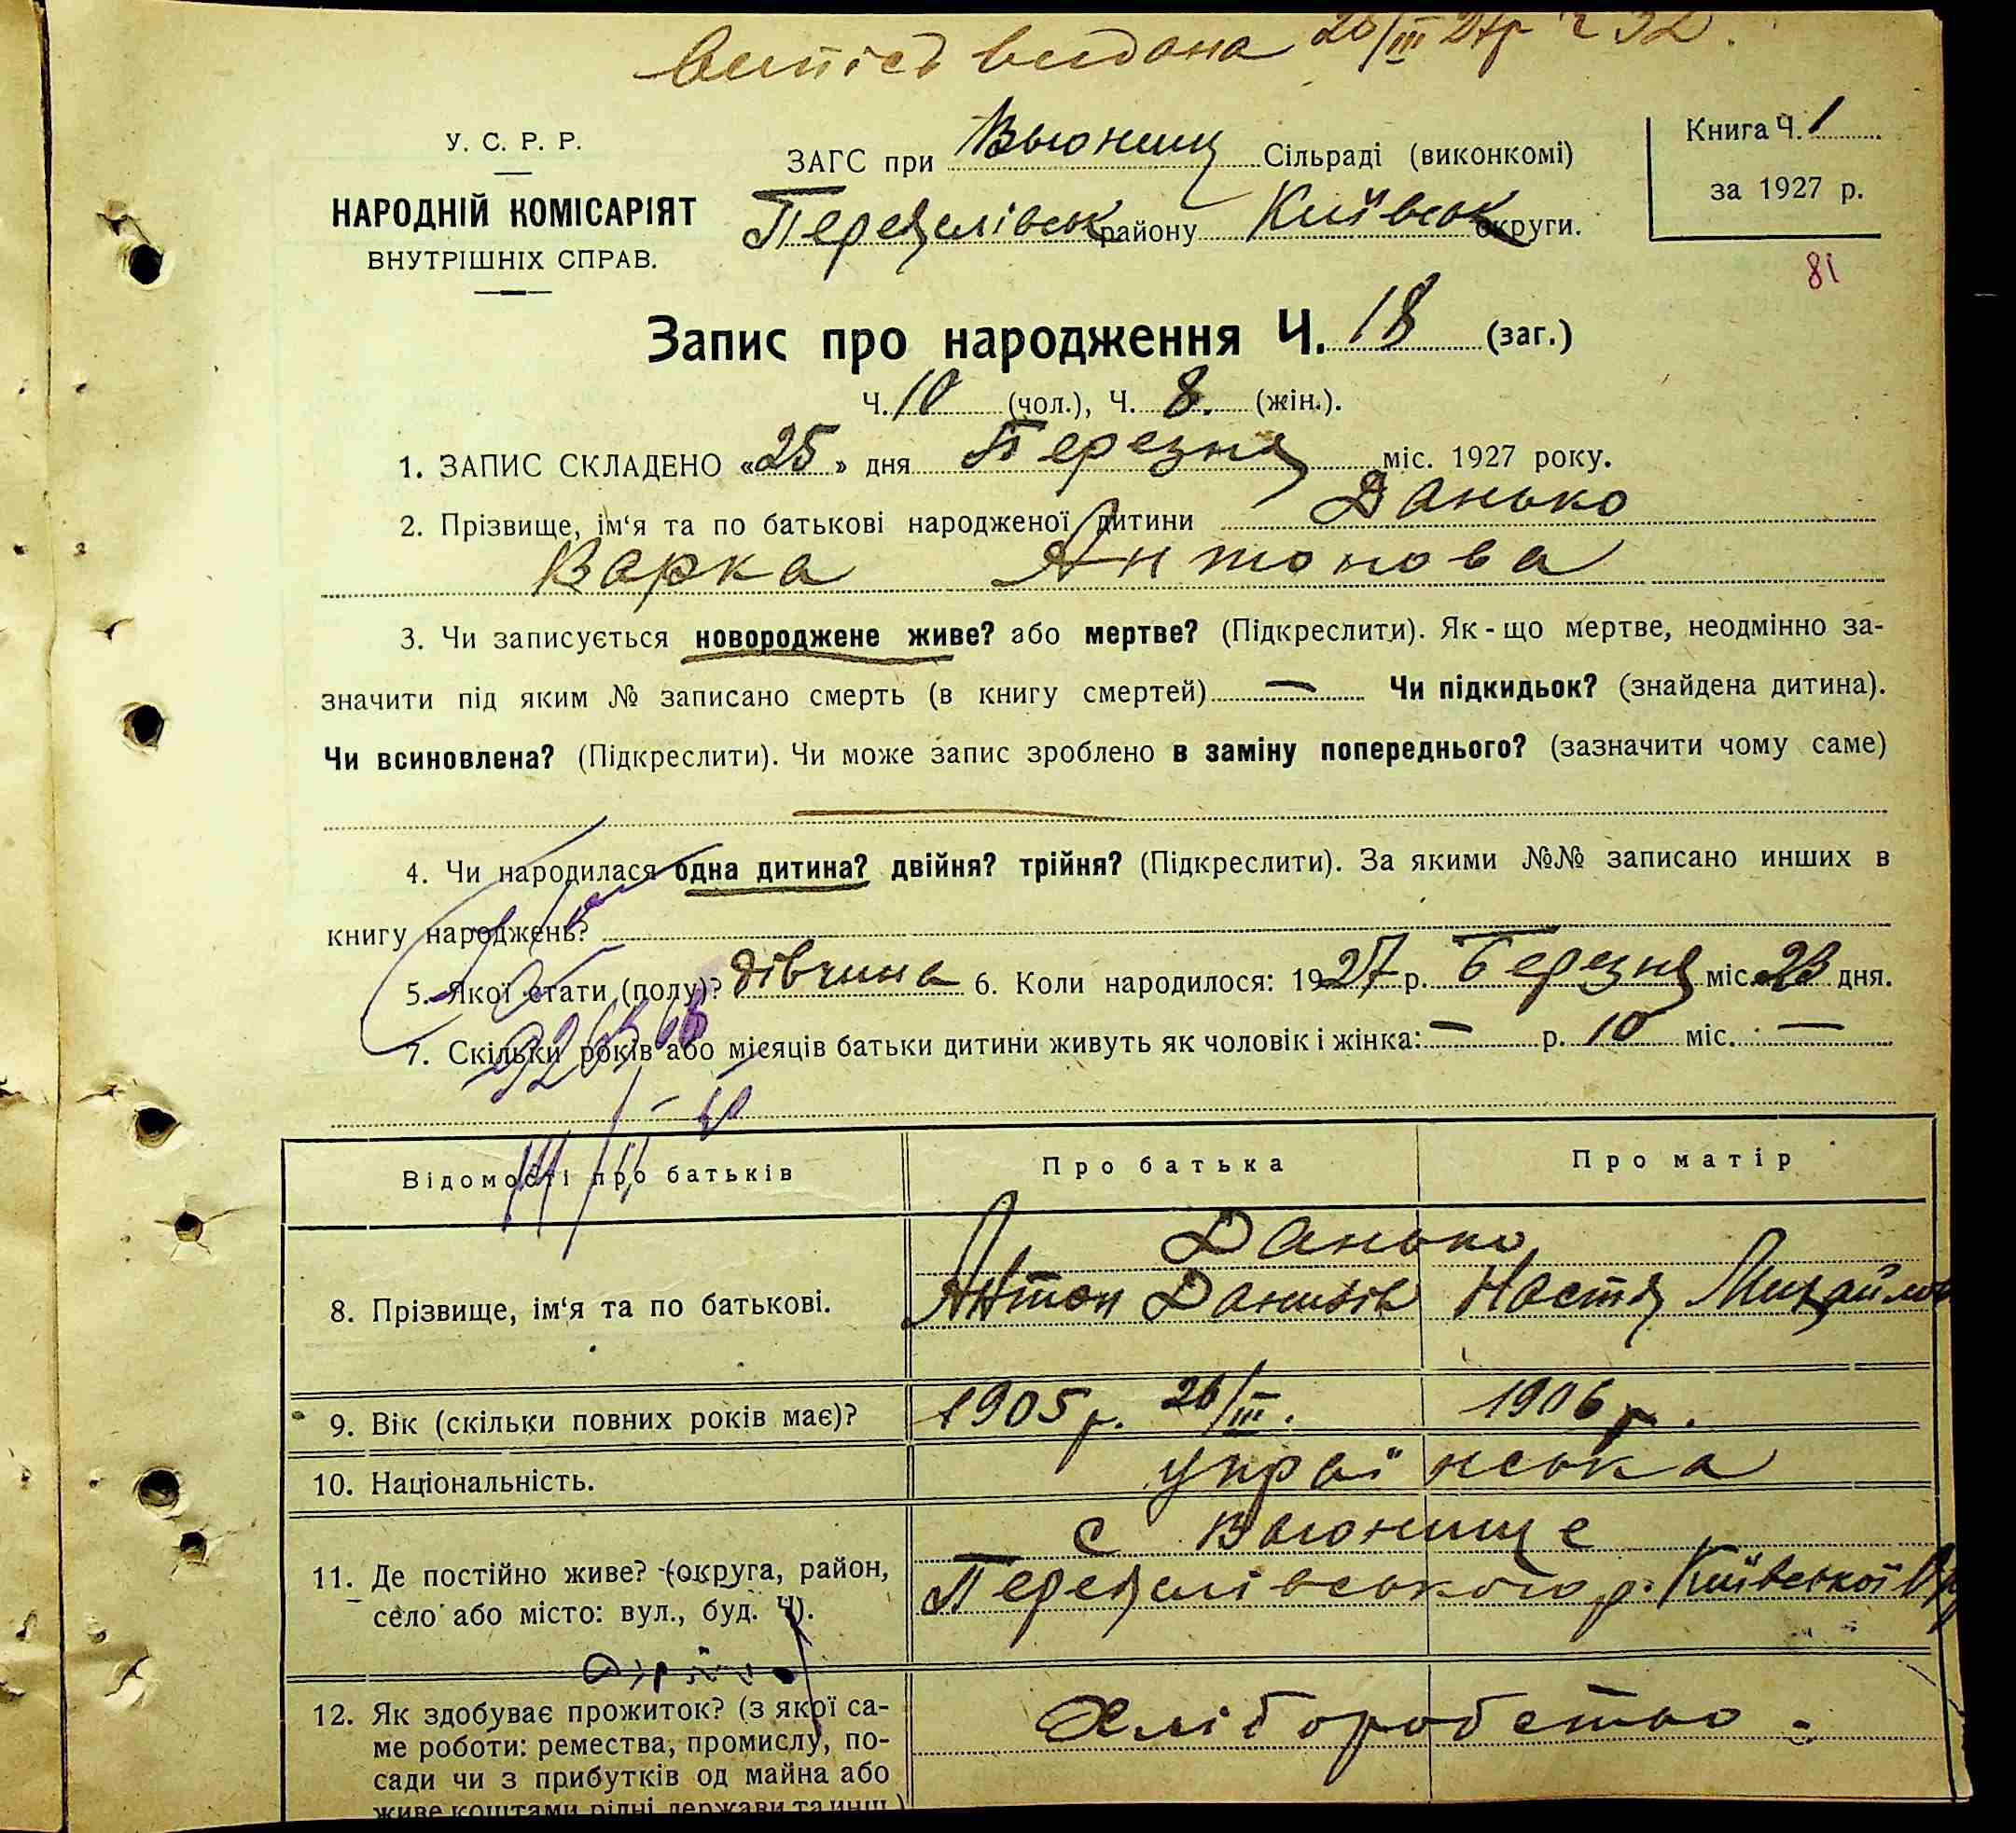 випісь видана 26/III 27р ч 32.
У. С. Р. Р.
НАРОДНІЙ КОМІСАРІЯТ
ВНУТРІШНІХ СПРАВ.
ЗАГС при Вьюнищ Сільраді (виконкомі)
Переяслівськ району Київськ округи.
Книга Ч. 1
за 1927 р.
81
Запис про народження Ч. 18 (заг.)
Ч. 10 (чол.), Ч. 8. (жін.).
1. ЗАПИС СКЛАДЕНО «25» дня Березня міс. 1927 року.
2. Прізвище, ім‘я та по батькові народженої дитини Данько
Варка Антонова
3. Чи записується новороджене живе? або мертве? (Підкреслити). Як-що мертве, неодмінно за-
значити під яким № записано смерть (в книгу смертей) — Чи підкидьок? (знайдена дитина).
Чи всиновлена? (Підкреслити). Чи може запис зроблено в заміну попереднього? (зазначити чому саме)
4. Чи народилася одна дитина? двійня? трійня? (Підкреслити). За якими №№ записано инших в
книгу народжень?
5. Якої стати (полу)? дівчина 6. Коли народилося: 1927 р. Березня міс. 23 дня.
7. Скільки років або місяців батьки дитини живуть як чоловік і жінка: — р. 10 міс. —
Відомості про батьків
Про батька
Про матір
8. Прізвище, ім‘я та по батькові.
Данько
Антон Данилів Настя Михайлов
9. Вік (скільки повних років має)?
1905 р. 26/III. 1906 р.
10. Національність.
українська
11. Де постійно живе? (округа, район,
село або місто: вул., буд. Ч).
с Вьюнище
Переяслівського р. Київської
12. Як здобуває прожиток? (з якої са-
ме роботи: ремества, промислу, по-
сади чи з прибутків од майна або
живе коштами рідні держави та инш.)
Хліборобство.